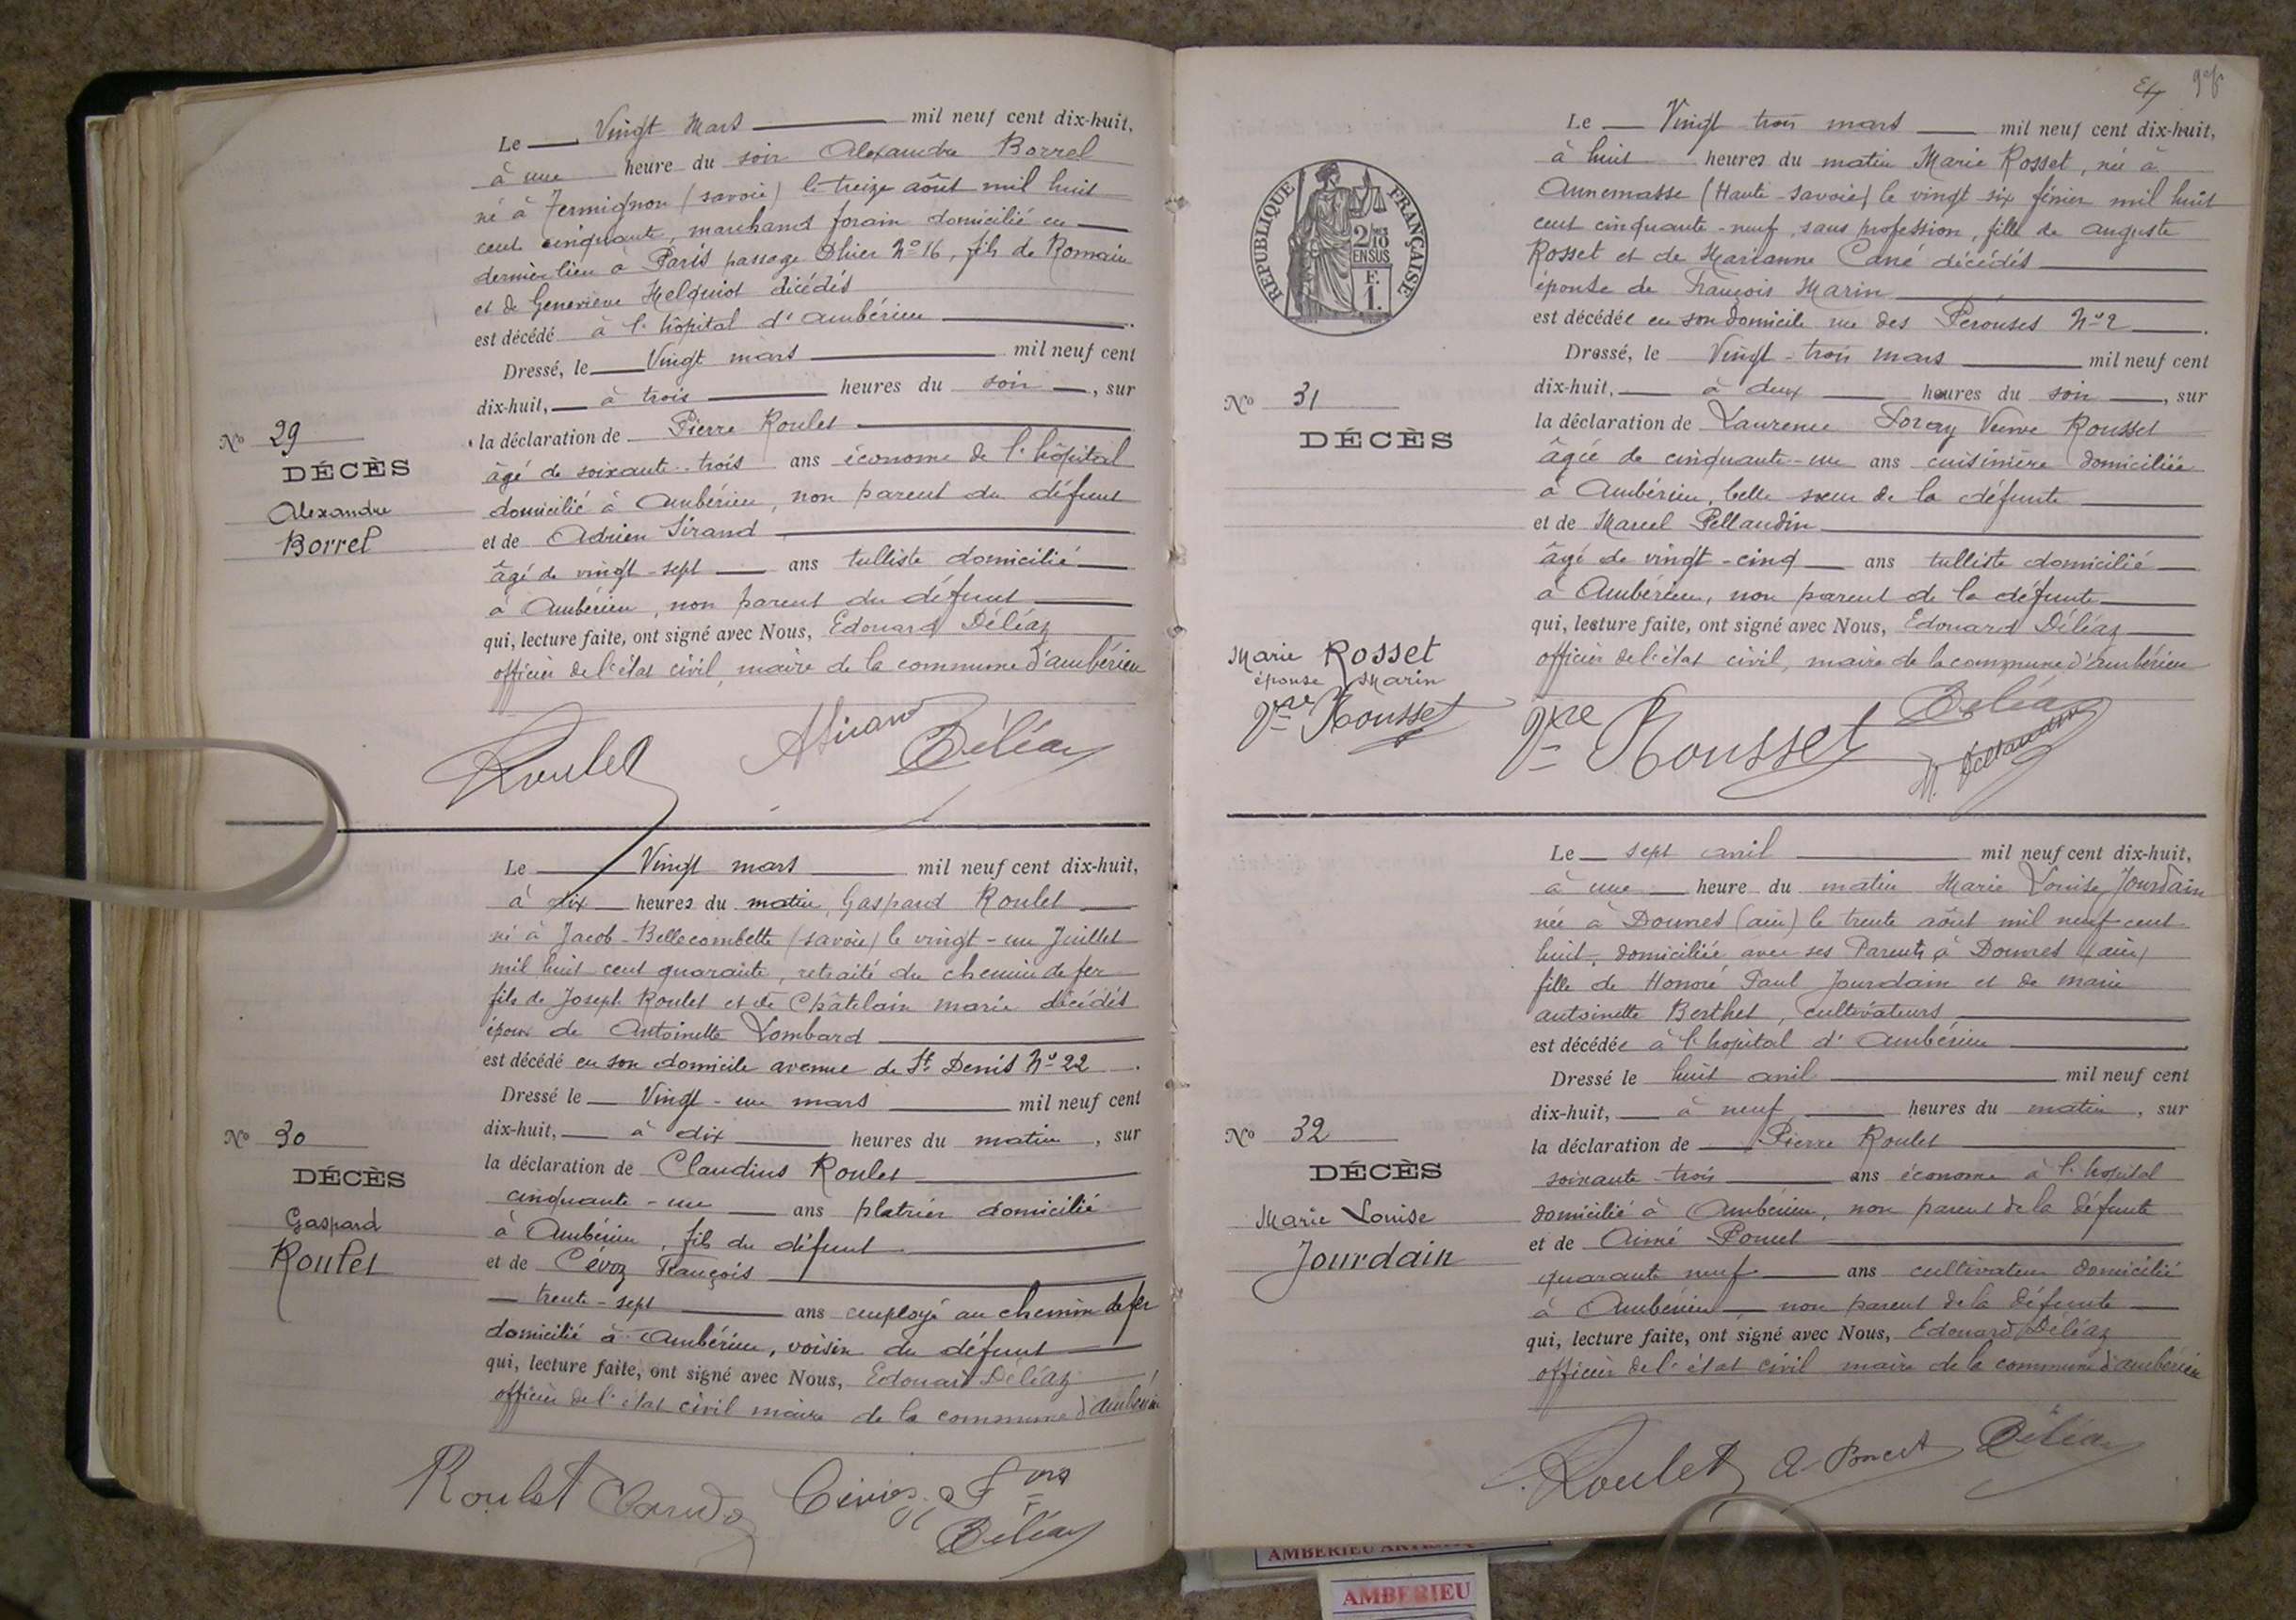 Le Vingt Mars mil neuf cent dix-huit,
à une heure du soir Alexandre Borrel
né à Termignon (savoie) le treize août mil huit
cent cinquante, marchand forain domicilié en
dernier lieu à Paris passage Dhier N° 16, fils de Romain
et de Geneviève Melquiot décédés
est décédé à l'hôpital d'ambérieu
Dressé, le Vingt mars mil neuf cent
dix-huit, à trois heures du soir, sur
N° 29
DÉCÈS
Alexandre
Borrel
la déclaration de Pierre Roulet
âgé de soixante-trois ans économe de l'hôpital
domicilié à Ambérieu, non parent du défunt
et de Adrien Sirand
âgé de vingt-sept ans tulliste domicilié
à Ambérieu, non parent du défunt
qui, lecture faite, ont signé avec Nous, Edouard Déléaz
officier de l'état civil, maire de la commune d'ambérieu
Roulet ASirand Déléaz
Le Vingt mars mil neuf cent dix-huit,
à dix heures du matin, Gaspard Roulet
né à Jacob-Bellecombette (savoie) le vingt-un Juillet
mil huit cent quarante, retraité du chemin de fer
fils de Joseph Roulet et de Châtelain marie décédés
époux de Antoinette Lombard
est décédé en son domicile avenue de St Denis N° 22.
Dressé le Vingt-un mars mil neuf cent
dix-huit, à dix heures du matin, sur
N° 30
DÉCÈS
Gaspard
Roulet
la déclaration de Claudius Roulet
cinquante-un ans platrier domicilié
à Ambérieu, fils du défunt
et de Cévoz François
trente-sept ans employé au chemin de fer
domicilié à Ambérieu, voisin du défunt
qui, lecture faite, ont signé avec Nous, Edouard Déléaz
officier de l'état civil maire de la commune d'ambérieu
Roulet Déléaz
Le Vingt trois mars mil neuf cent dix-huit,
à huit heures du matin Marie Rosset, née à
Annemasse (Haute-savoie) le vingt six février mil huit
cent cinquante-neuf, sans profession, fille de auguste
Rosset et de Marianne Cané décédés
épouse de François Marin
est décédée en son domicile rue des Pérouses N° 2
RÉPUBLIQUE FRANÇAISE
2/10 EN SUS
F.
1.
Dressé, le Vingt-trois mars mil neuf cent
dix-huit, à deux heures du soir, sur
N° 31
DÉCÈS
Marie Rosset
épouse Marin
Vve Rousset
la déclaration de Laurence Veuve Rousset
âgée de cinquante-un ans cuisinière domiciliée
à Ambérieu, belle soeur de la défunte
et de Marcel Pellaudin
âgé de vingt-cinq ans tulliste domicilié
à Ambérieu, non parent de la défunte
qui, lecture faite, ont signé avec Nous, Edouard Déléaz
officier de l'état civil, maire de la commune d'ambérieu
Vve Rousset Déléaz
M. Pellaudin
Le sept avril mil neuf cent dix-huit,
à une heure du matin Marie Louise Jourdain
née à Douvres (ain) le trente août mil neuf cent
huit, domiciliée avec ses Parents à Douvres (ain)
fille de Honoré Paul Jourdain et de marie
antoinette Berthet, cultivateurs
est décédée à l'hopital d'Ambérieu
Dressé le huit avril mil neuf cent
dix-huit, à neuf heures du matin, sur
N° 32
DÉCÈS
Marie Louise
Jourdain
la déclaration de Pierre Roulet
soixante-trois ans économe à l'hopital
domicilié à Ambérieu, non parent de la défunte
et de Aimé Poncet
quarante neuf ans cultivateur domicilié
à Ambérieu non parent de la défunte
qui, lecture faite, ont signé avec Nous, Edouard Déléaz
officier de l'état civil maire de la commune d'ambérieu
Roulet A Poncet Déléaz
AMBERIEU
AMBERIEU